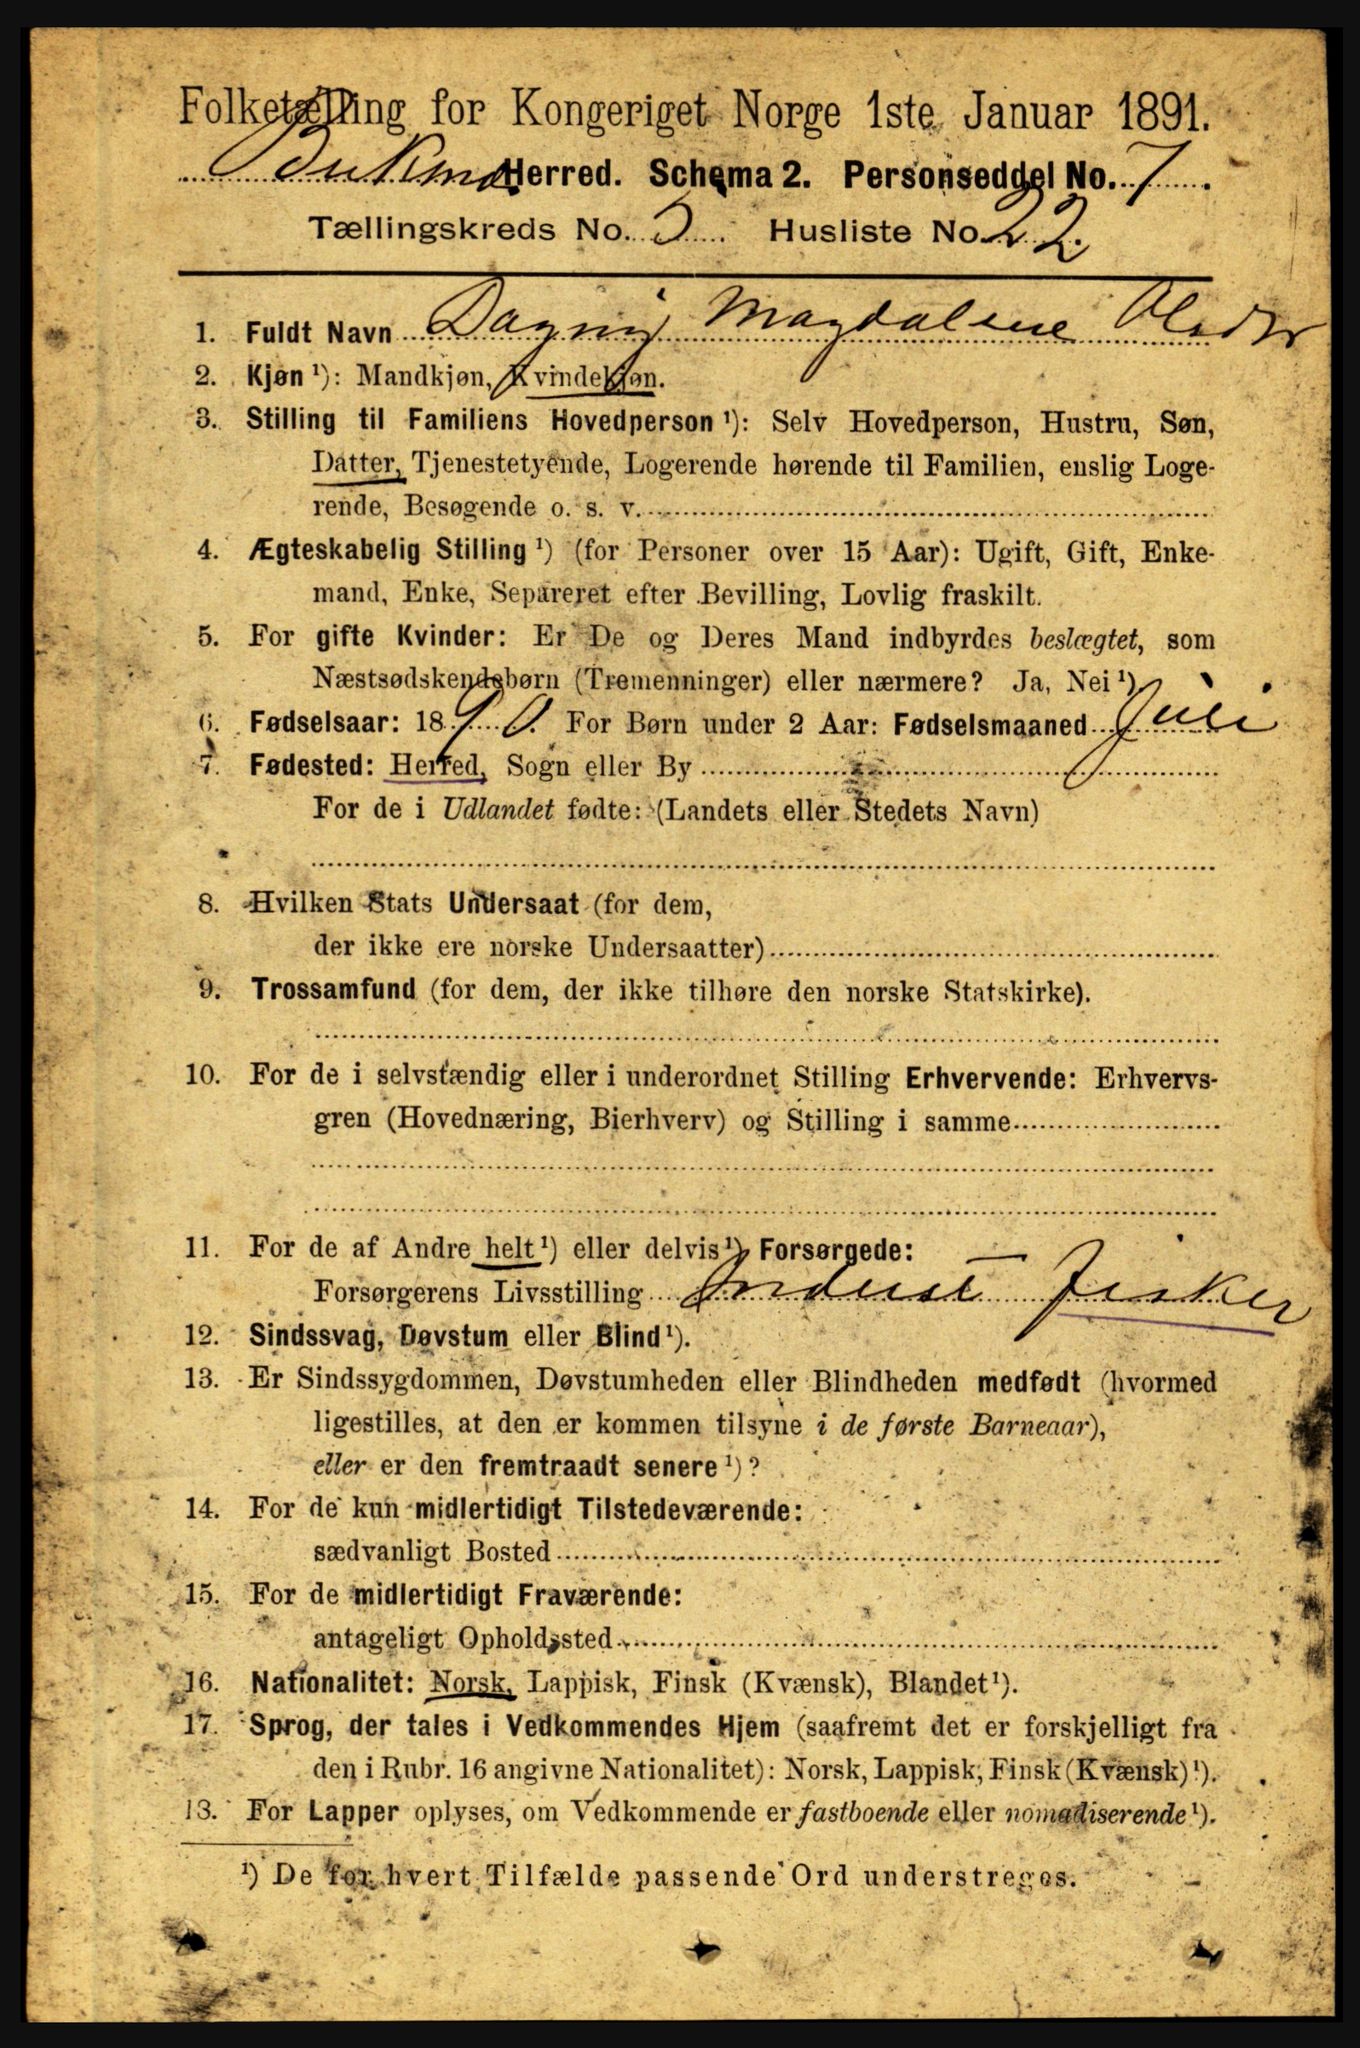 Folketælling for Kongeriget Norge 1ste Januar 1891.
Buksnes Herred. Schema 2. Personseddel No. 7.
Tællingskreds No. 5. Husliste No. 22.
1. Fuldt Navn Dagny Magdalene Olsdtr
2. Kjøn ¹): Mandkjøn, Kvindekjøn.
3. Stilling til Familiens Hovedperson ¹): Selv Hovedperson, Hustru, Søn,
Datter, Tjenestetyende, Logerende hørende til Familien, enslig Loge-
rende, Besøgende o. s. v.
4. Ægteskabelig Stilling ¹) (for Personer over 15 Aar): Ugift, Gift, Enke-
mand, Enke, Separeret efter Bevilling, Lovlig fraskilt.
5. For gifte Kvinder: Er De og Deres Mand indbyrdes beslægtet, som
Næstsødskendebørn (Tremenninger) eller nærmere? Ja, Nei ¹)
6. Fødselsaar: 1890. For Børn under 2 Aar: Fødselsmaaned Juli
7. Fødested: Herred, Sogn eller By
For de i Udlandet fødte: (Landets eller Stedets Navn)
8. Hvilken Stats Undersaat (for dem,
der ikke ere norske Undersaatter)
9. Trossamfund (for dem, der ikke tilhøre den norske Statskirke).
10. For de i selvstændig eller i underordnet Stilling Erhvervende: Erhvervs-
gren (Hovednæring, Bierhverv) og Stilling i samme
11. For de af Andre helt ¹) eller delvis ¹) Forsørgede:
Forsørgerens Livsstilling Inderst - Fisker
12. Sindssvag, Døvstum eller Blind ¹).
13. Er Sindssygdommen, Døvstumheden eller Blindheden medfødt (hvormed
ligestilles, at den er kommen tilsyne i de første Barneaar),
eller er den fremtraadt senere ¹)?
14. For de kun midlertidigt Tilstedeværende:
sædvanligt Bosted
15. For de midlertidigt Fraværende:
antageligt Opholdssted
16. Nationalitet: Norsk, Lappisk, Finsk (Kvænsk), Blandet ¹).
17. Sprog, der tales i Vedkommendes Hjem (saafremt det er forskjelligt fra
den i Rubr. 16 angivne Nationalitet): Norsk, Lappisk, Finsk (Kvænsk) ¹).
18. For Lapper oplyses, om Vedkommende er fastboende eller nomadiserende ¹).
¹) De for hvert Tilfælde passende Ord understreges.